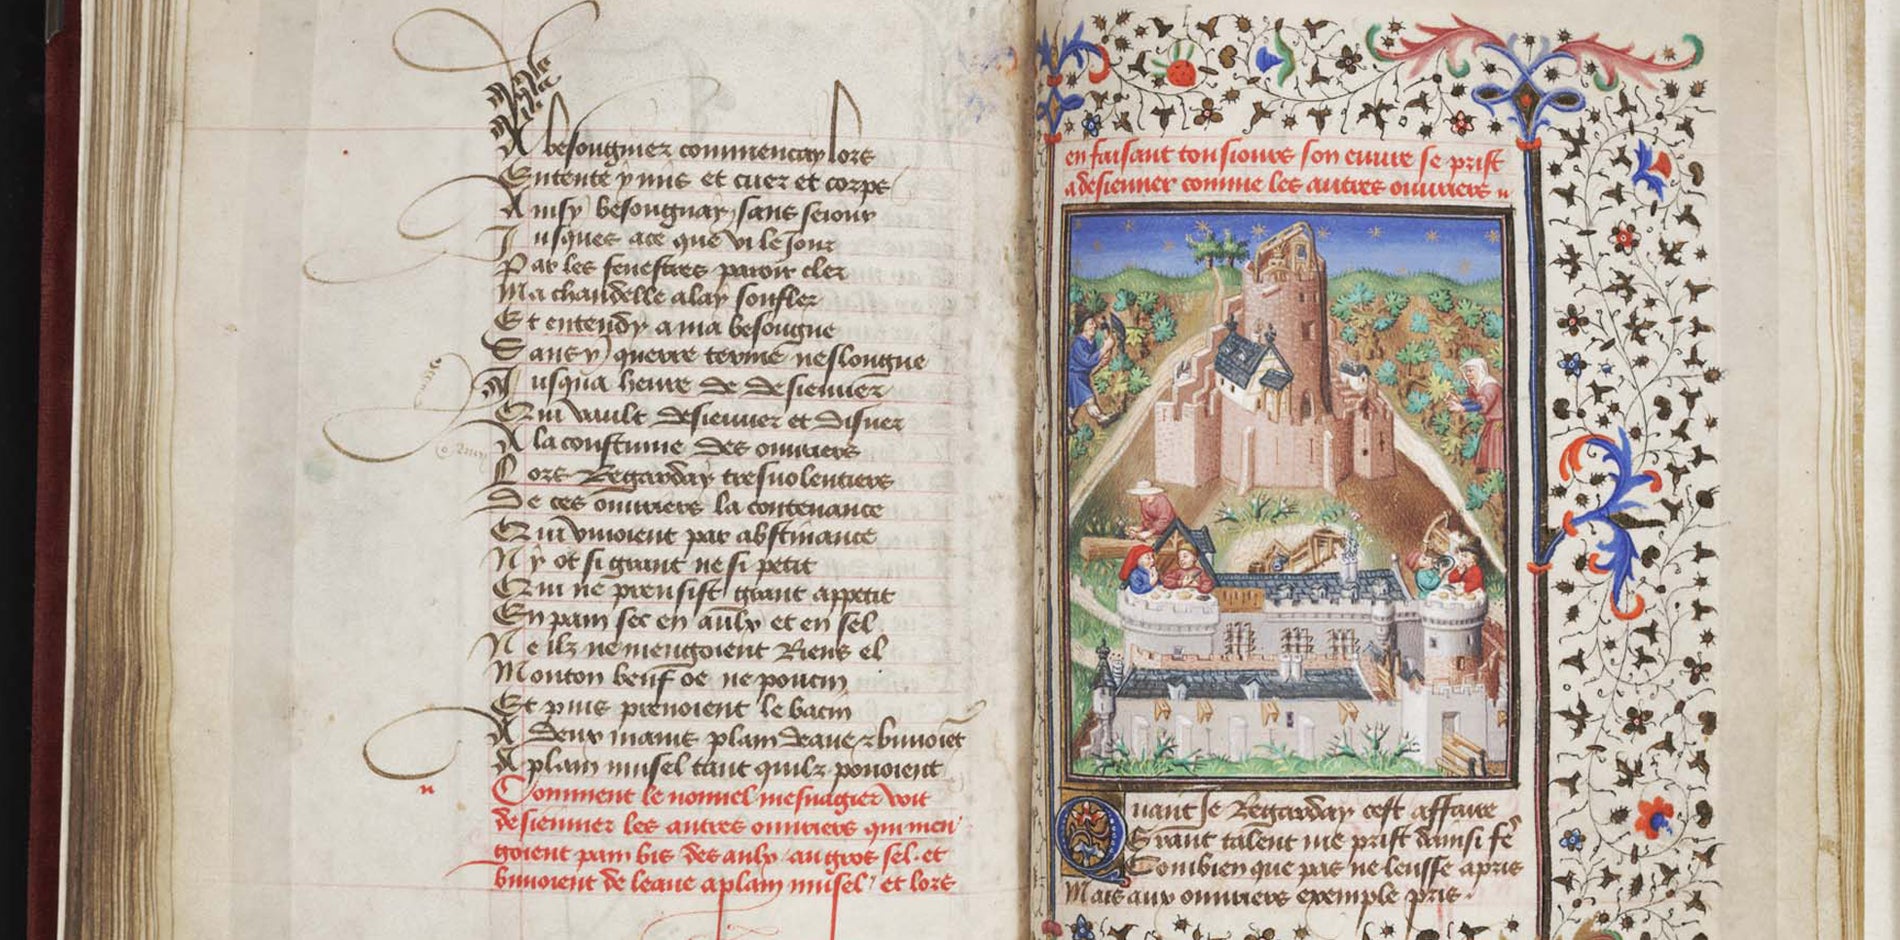 A besongnier commencay lors
Entente y mis et cuer et corps
Ainsy besongnay sans seiour
Jusques a ce que vi le Jour
Par les fenestres paroir cler
Ma chandelle alay soufler
Et entendy a ma besongne
Sans y querre terme neslongue
Jusqua heure de desieuner
Qui vault desieuner et disner
A la coustume des ouuriers
Lors Regarday tresuolentiers
De ces ouuriers la contenance
Qui viuoient par abstinance
Ny ot si grant ne si petit
Qui ne prensist grant appetit
En pain sec en aulx et en sel
Ne ilz ne mengoient Riens el
Mouton beuf oe ne poucin
Et puis prenoient le bacin
A deux mains plain deaue et buuoiet
A plain musel tant quilz pouoient
Comment le nouuel mesnagier voit
desieuner les autres ouuriers qui men
goient pain bis des aulx au gros sel et
buuoient de leaue a plain musel et lors
en faisant tousiours son euure se prist
a desieuner comme les autres ouuriers
Quant Je Regarday cest affaire
Grant talent me prist dainsi fe
Combien que pas ne leusse apris
Mais aux ouuriers exemple pris